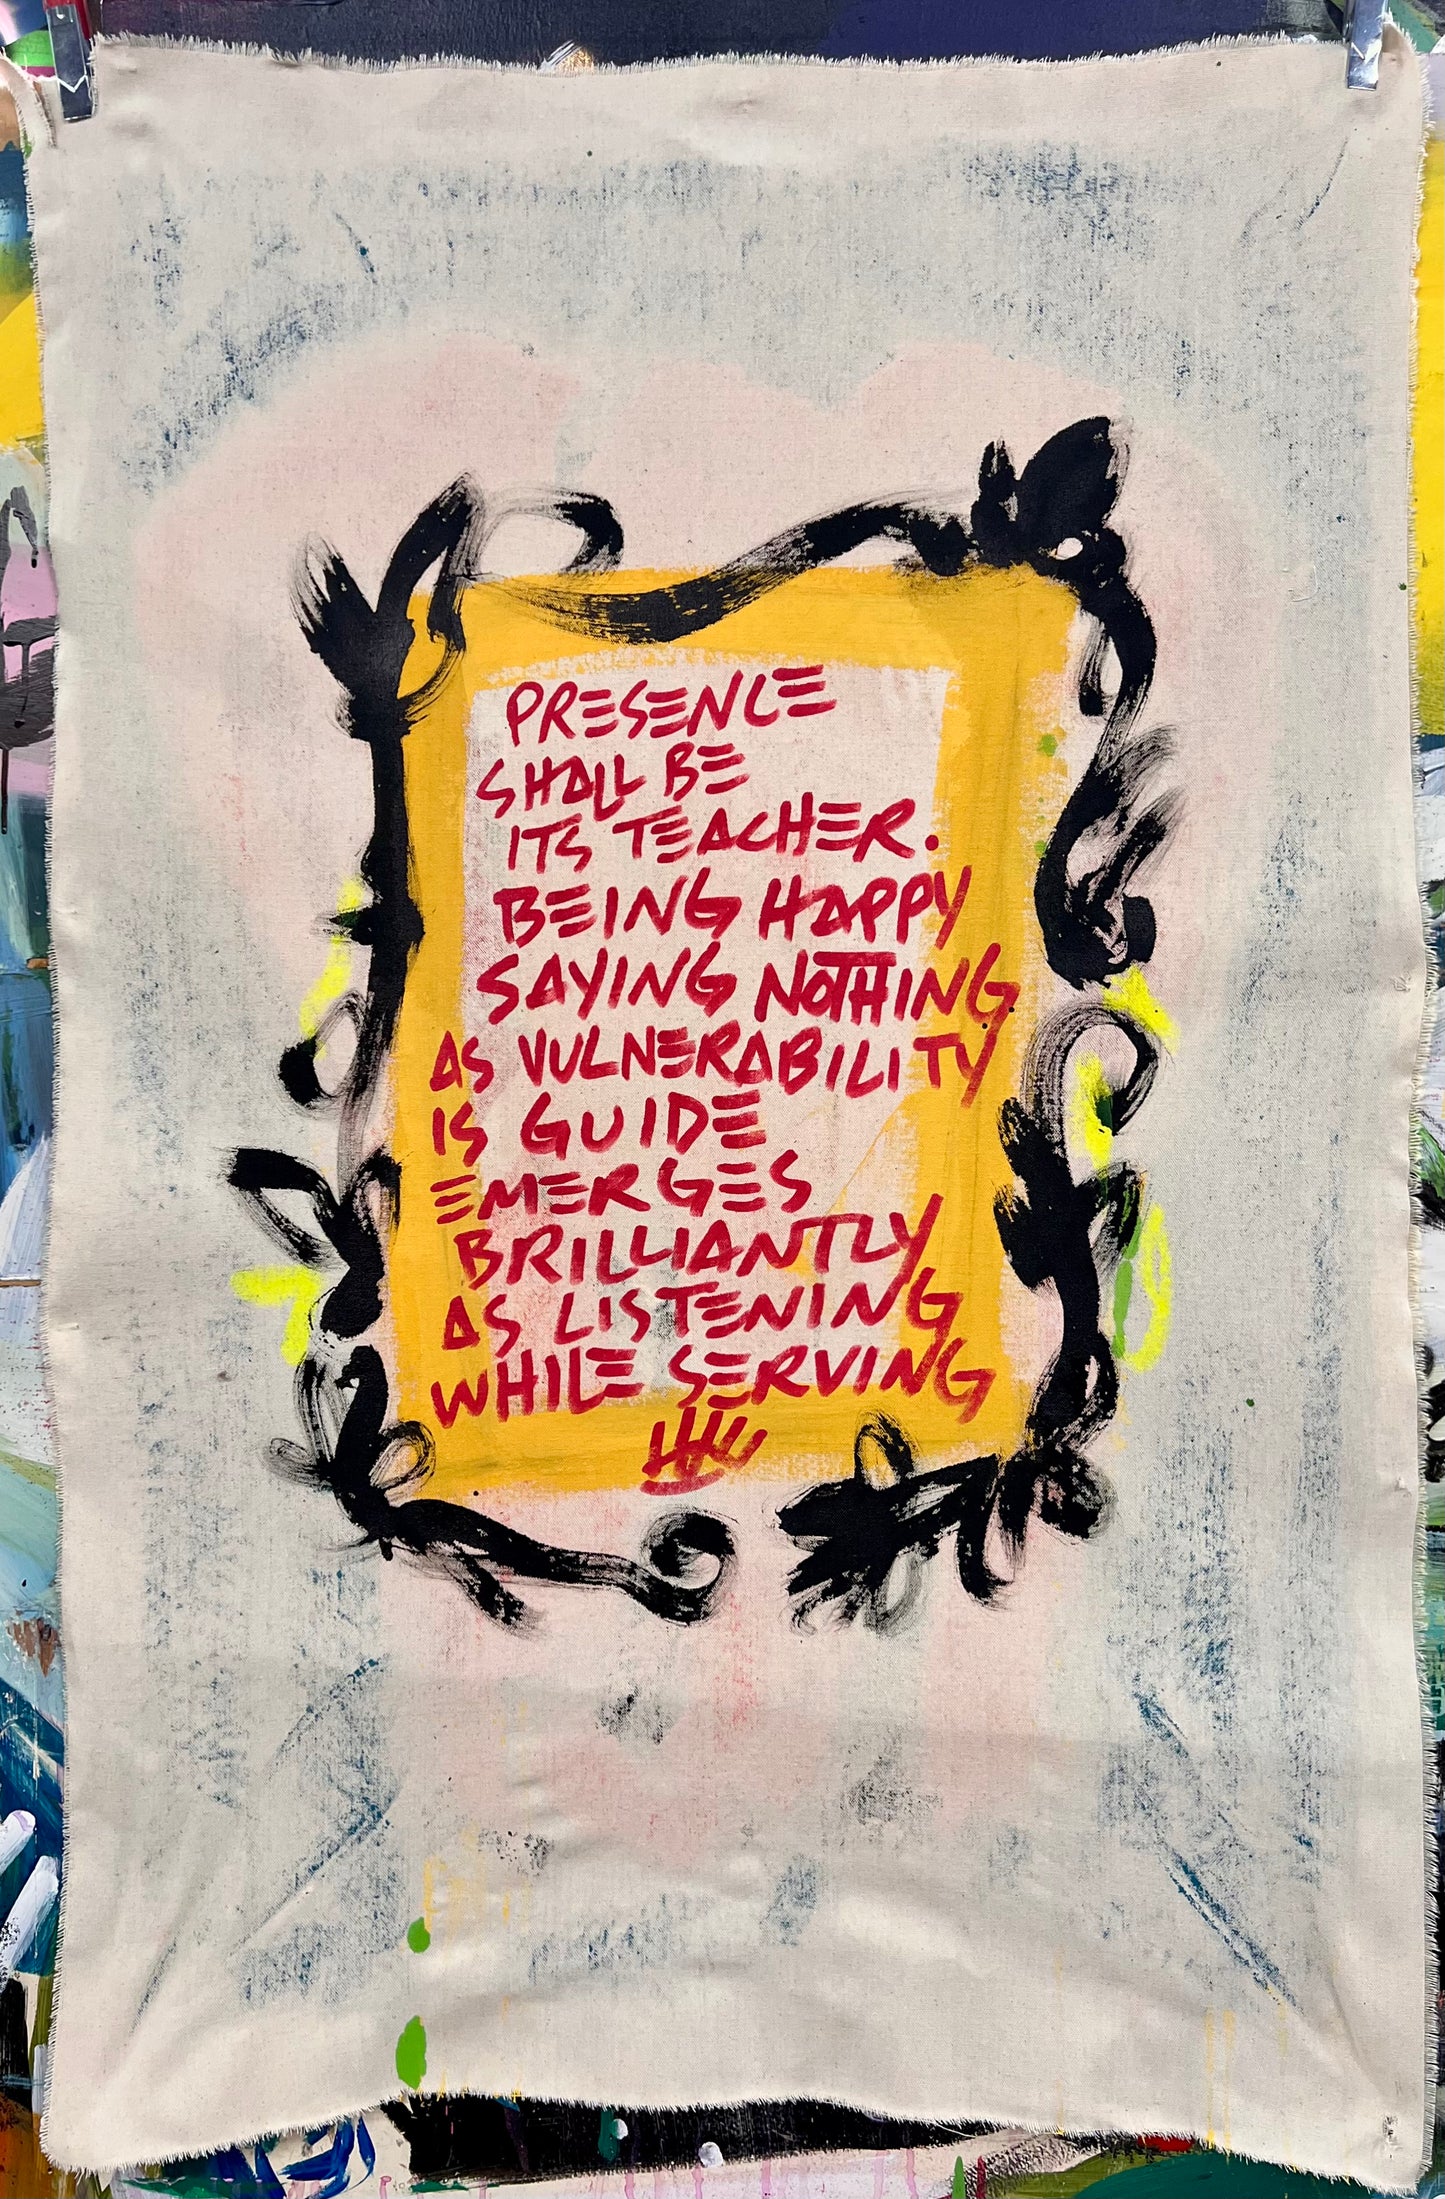 PRESENCE
SHALL BE
ITS TEACHER.
BEING HAPPY
SAYING NOTHING
AS VULNERABILITY
IS GUIDE
EMERGES
BRILLIANTLY
AS LISTENING
WHILE SERVING